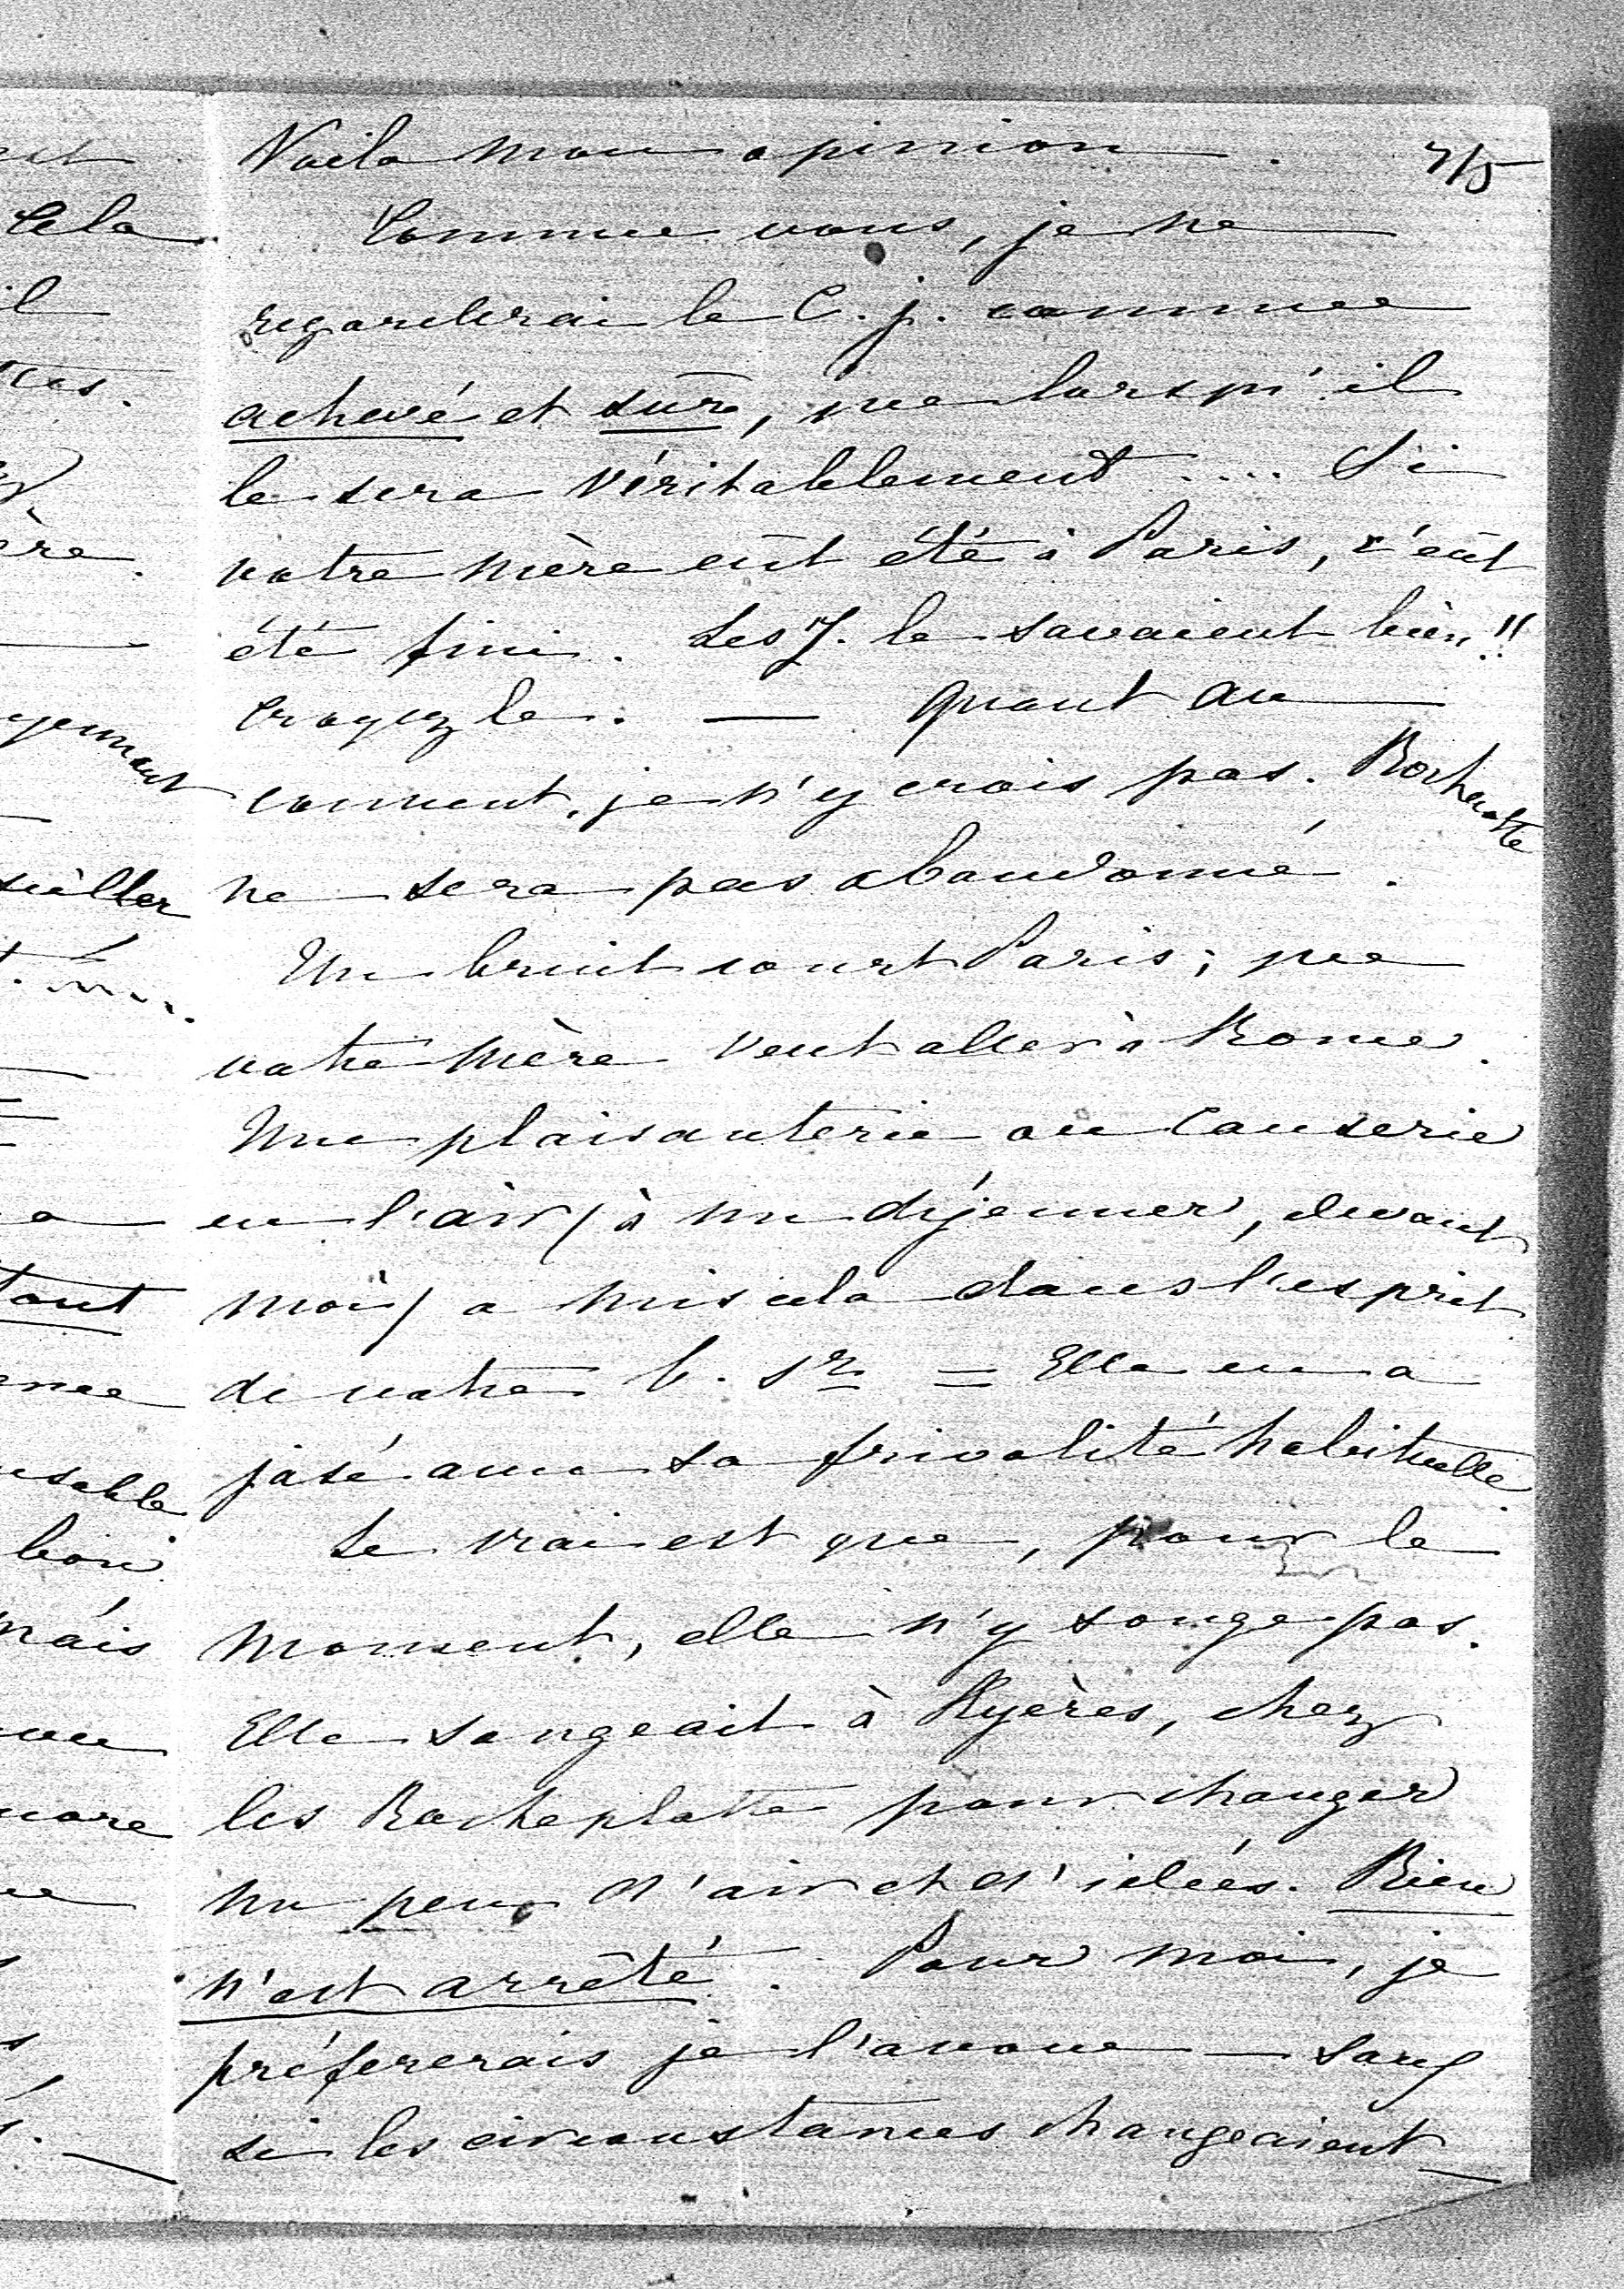 Voila mon opinion. 7/5
Comme vous, je ne
regarderai le C. j. comme
achevé et sûr, que lorsqu'il
le sera véritablement .... Si
votre mère eût été à Paris, c'eût
été fini. Les J. le savaient bien!!
Croyez le. — Quant au
couvent, je n'y crois pas. Rochecotte
ne sera pas abandonné.
Un bruit court Paris; que
votre mère veut aller à Rome.
Une plaisanterie ou causerie
en l'air (à un déjeuner, devant
moi) a mis cela dans l'esprit
de votre b. sr = Elle en a
jasé avec sa frivolité habituelle.
Le vrai est que, pour le
moment, elle n'y songe pas.
Elle songeait à Hyères, chez
les Rocheplatte pour changer
un peu d'air et d'idées. Rien
n'est arrêté. Pour moi, je
préfererais je l'avoue — sauf
si les circonstances changeaient —